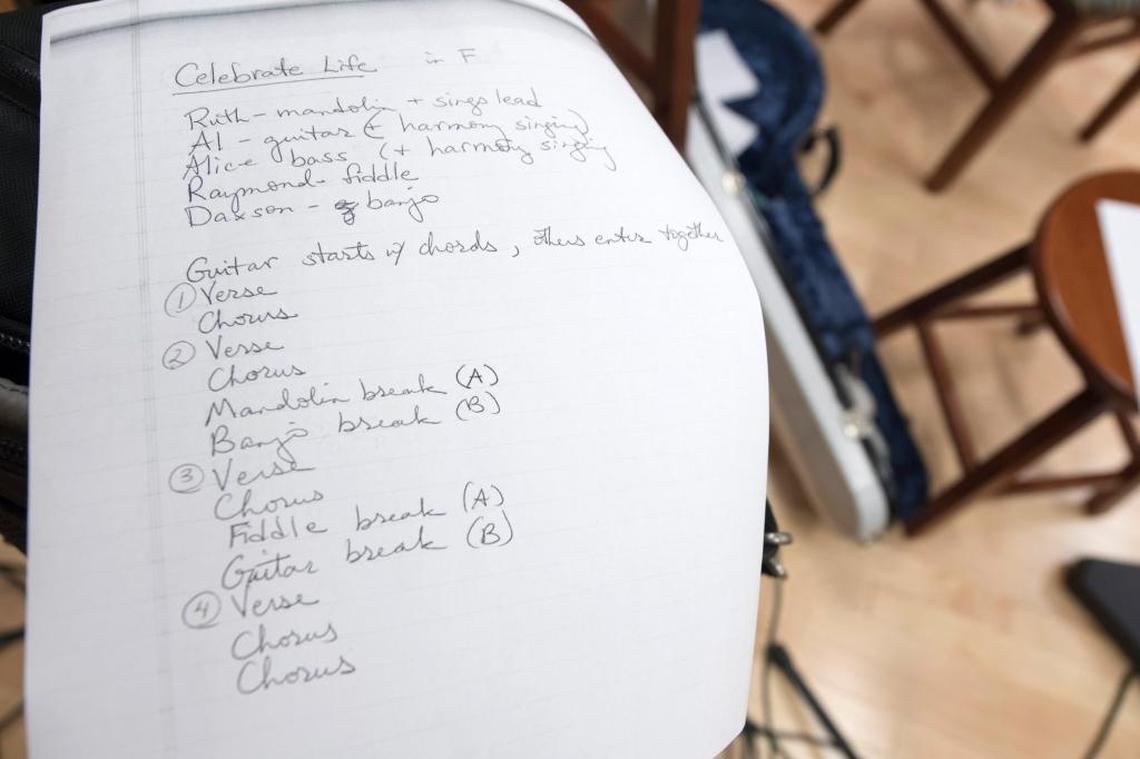 Celebrate Life in F
Ruth - mandolin + sings lead
Al - guitar (+ harmony singing)
Alice bass (+ harmony singing
Raymond - fiddle
Daxson - banjo
Guitar starts w/ chords, others enter together
① Verse
Chorus
② Verse
Chorus
Mandolin break (A)
Banjo break (B)
③ Verse
Chorus
Fiddle break (A)
Guitar break (B)
④ Verse
Chorus
Chorus